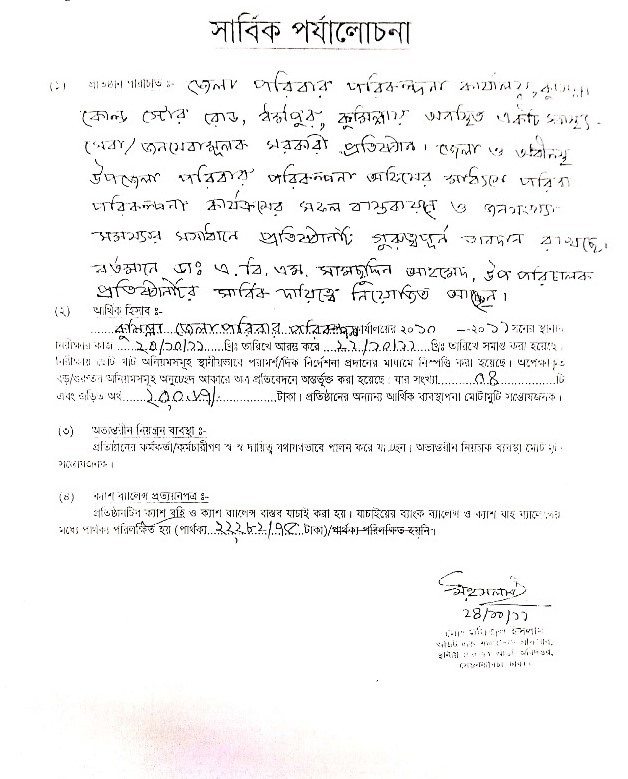 সার্বিক পর্যালোচনা
(১) প্রতিষ্ঠান পরিচিতি ঃ- জেলা পরিবার পরিকল্পনা কার্যালয়, কুমিল্লা
কোল্ড স্টোর রোড, কুমিল্লায় অবস্থিত একটি স্বাস্থ্য-
সেবা/জনসেবামূলক সরকারী প্রতিষ্ঠান। জেলা ও অধীনস্থ
উপজেলা পরিবার পরিকল্পনা অফিসের মাধ্যমে পরিবার
পরিকল্পনা কার্যক্রমের সফল বাস্তবায়নে ও জনসংখ্যা
সমস্যার সমাধানে প্রতিষ্ঠানটি গুরুত্বপূর্ন অবদান রাখছে।
বর্তমানে ডাঃ এ.বি.এম. সামছুদ্দিন আহমেদ, উপ পরিচালক
প্রতিষ্ঠানটির সার্বিক দায়িত্বে নিয়োজিত আছেন।
(২) আর্থিক হিসাব ঃ-
কুমিল্লা জেলা পরিবার পরিকল্পনা কার্যালয়ের ২০১০ -২০১১ সনের স্থানীয়
নিরীক্ষার কাজ খ্রিঃ তারিখে আরম্ভ করে খ্রিঃ তারিখে সমাপ্ত করা হয়েছে।
নিরীক্ষায় ছোট খাট অনিয়মসমূহ স্থানীয়ভাবে পরামর্শ/দিক নির্দেশনা প্রদানের মাধ্যমে নিষ্পত্তি করা হয়েছে। অপেক্ষাকৃত
বড়/গুরুতর অনিয়মসমূহ অনুচ্ছেদ আকারে অত্র প্রতিবেদনে অন্তর্ভুক্ত করা হয়েছে। যার সংখ্যা ০৪ টি
এবং জড়িত অর্থ টাকা। প্রতিষ্ঠানের অন্যান্য আর্থিক ব্যবস্থাপনা মোটামুটি সন্তোষজনক।
(৩) অভ্যন্তরীন নিয়ন্ত্রন ব্যবস্থা ঃ-
প্রতিষ্ঠানের কর্মকর্তা/কর্মচারীগণ স্ব স্ব দায়িত্ব যথাযথভাবে পালন করে যাচ্ছেন। অভ্যন্তরীন নিয়ন্ত্রক ব্যবস্থা মোটামুটি
সন্তোষজনক।
(৪) ক্যাশ ব্যালেন্স প্রত্যয়নপত্র ঃ-
প্রতিষ্ঠানটির ক্যাশ বহি ও ক্যাশ ব্যালেন্স বাস্তব যাচাই করা হয়। যাচাইয়ের ব্যাংক ব্যালেন্স ও ক্যাশ বহি ব্যালেন্সের
মধ্যে পার্থক্য পরিলক্ষিত হয় (পার্থক্য টাকা)/পার্থক্য পরিলক্ষিত হয়নি।
২৪/১০/১১